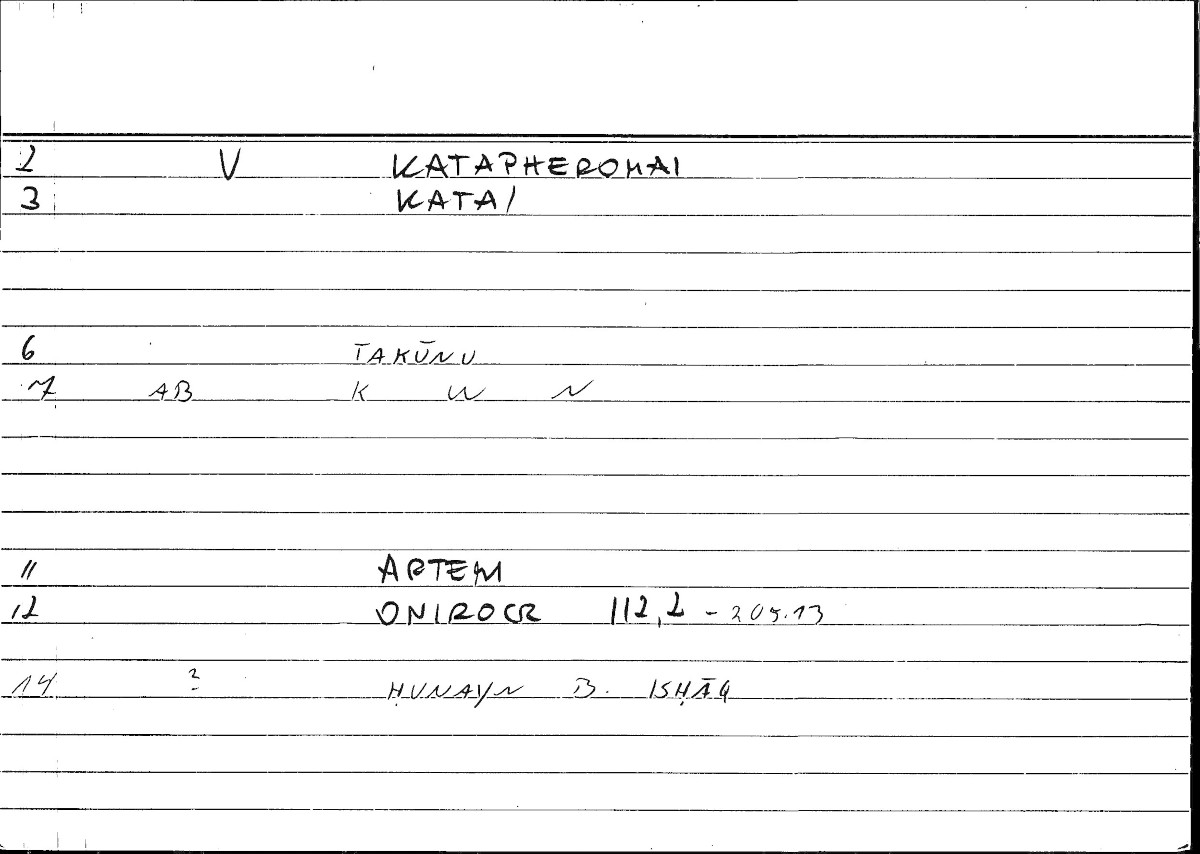 2 V KATAPHEROMAI
3 KATA/
6 TAKŪNU
7 AB K W N
11 ARTEM
12 ONIROCR 112,2 - 205.13
14 2 ḤUNAYN B. ISḤĀQ